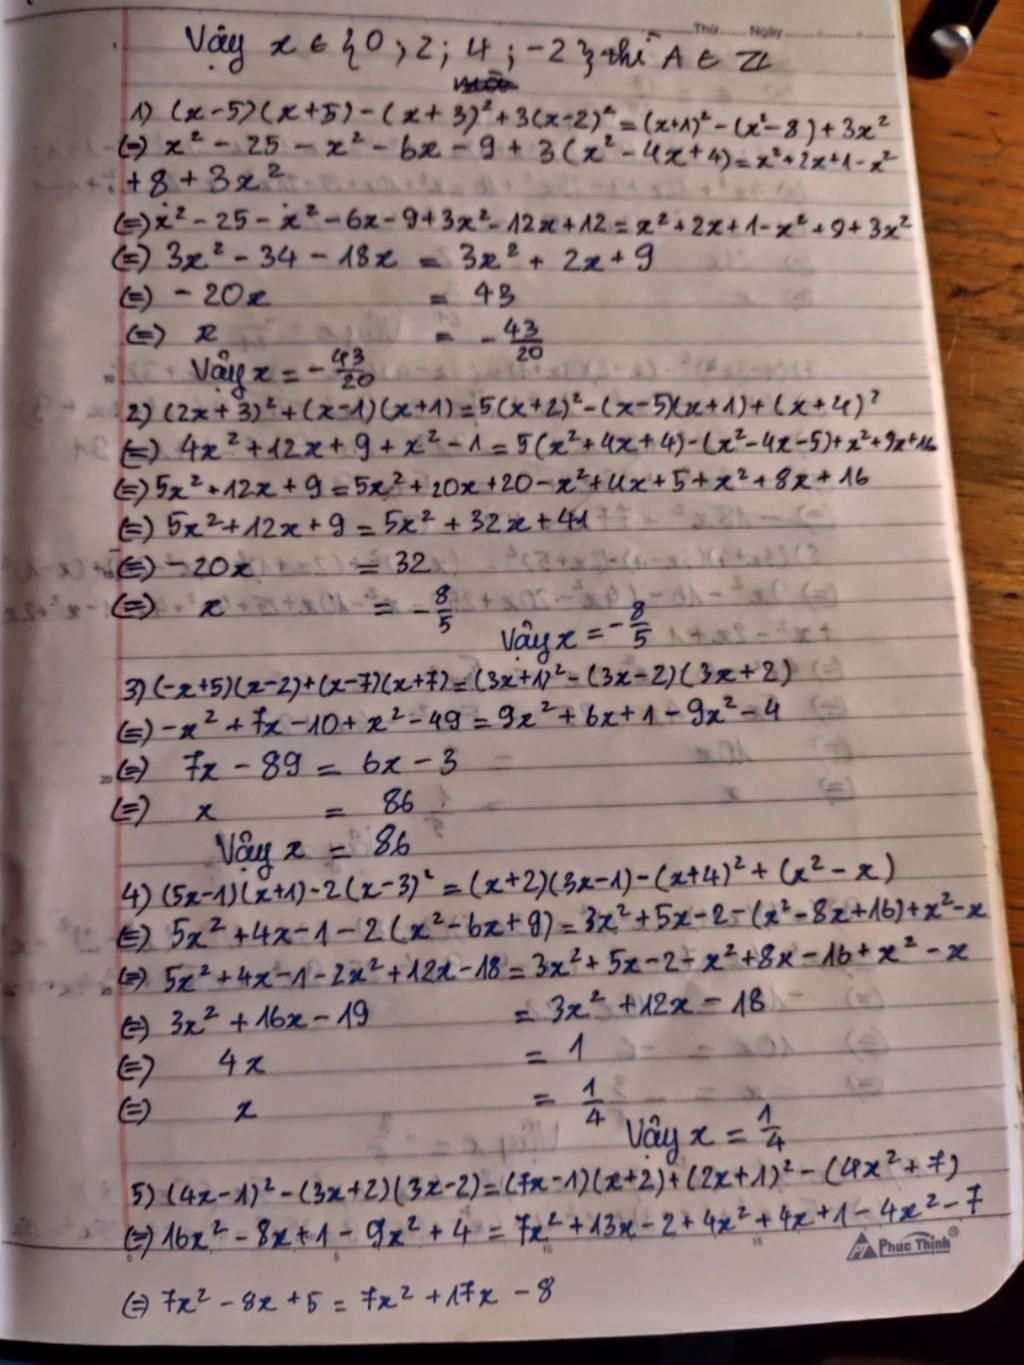 Thứ...... Ngày...........
Vậy x ∈ {0 ; 2 ; 4 ; -2} thì A ∈ Z
1) (x-5)(x+5) - (x+3)² + 3(x-2)² = (x+1)² - (x²-8) + 3x²
(=) x² - 25 - x² - 6x - 9 + 3(x² - 4x + 4) = x² + 2x + 1 - x²
+ 8 + 3x²
(=) x² - 25 - x² - 6x - 9 + 3x² - 12x + 12 = x² + 2x + 1 - x² + 9 + 3x²
(=) 3x² - 34 - 18x = 3x² + 2x + 9
(=) - 20x = 43
(=) x = - 43/20
Vậy x = - 43/20
2) (2x+3)² + (x-1)(x+1) = 5(x+2)² - (x-5)(x+1) + (x+4)²
(=) 4x² + 12x + 9 + x² - 1 = 5(x² + 4x + 4) - (x² - 4x - 5) + x² + 9x + 16
(=) 5x² + 12x + 9 = 5x² + 20x + 20 - x² + 4x + 5 + x² + 8x + 16
(=) 5x² + 12x + 9 = 5x² + 32x + 41
(=) - 20x = 32
(=) x = - 8/5
Vậy x = - 8/5
3) (-x+5)(x-2) + (x-7)(x+7) = (3x+1)² - (3x-2)(3x+2)
(=) -x² + 7x - 10 + x² - 49 = 9x² + 6x + 1 - 9x² - 4
(=) 7x - 89 = 6x - 3
(=) x = 86
Vậy x = 86
4) (5x-1)(x+1) - 2(x-3)² = (x+2)(3x-1) - (x+4)² + (x² - x)
(=) 5x² + 4x - 1 - 2(x² - 6x + 9) = 3x² + 5x - 2 - (x² - 8x + 16) + x² - x
(=) 5x² + 4x - 1 - 2x² + 12x - 18 = 3x² + 5x - 2 - x² + 8x - 16 + x² - x
(=) 3x² + 16x - 19 = 3x² + 12x - 18
(=) 4x = 1
(=) x = 1/4
Vậy x = 1/4
5) (4x-1)² - (3x+2)(3x-2) = (7x-1)(x+2) + (2x+1)² - (4x² + 7)
(=) 16x² - 8x + 1 - 9x² + 4 = 7x² + 13x - 2 + 4x² + 4x + 1 - 4x² - 7
Phúc Thịnh®
(=) 7x² - 8x + 5 = 7x² + 17x - 8